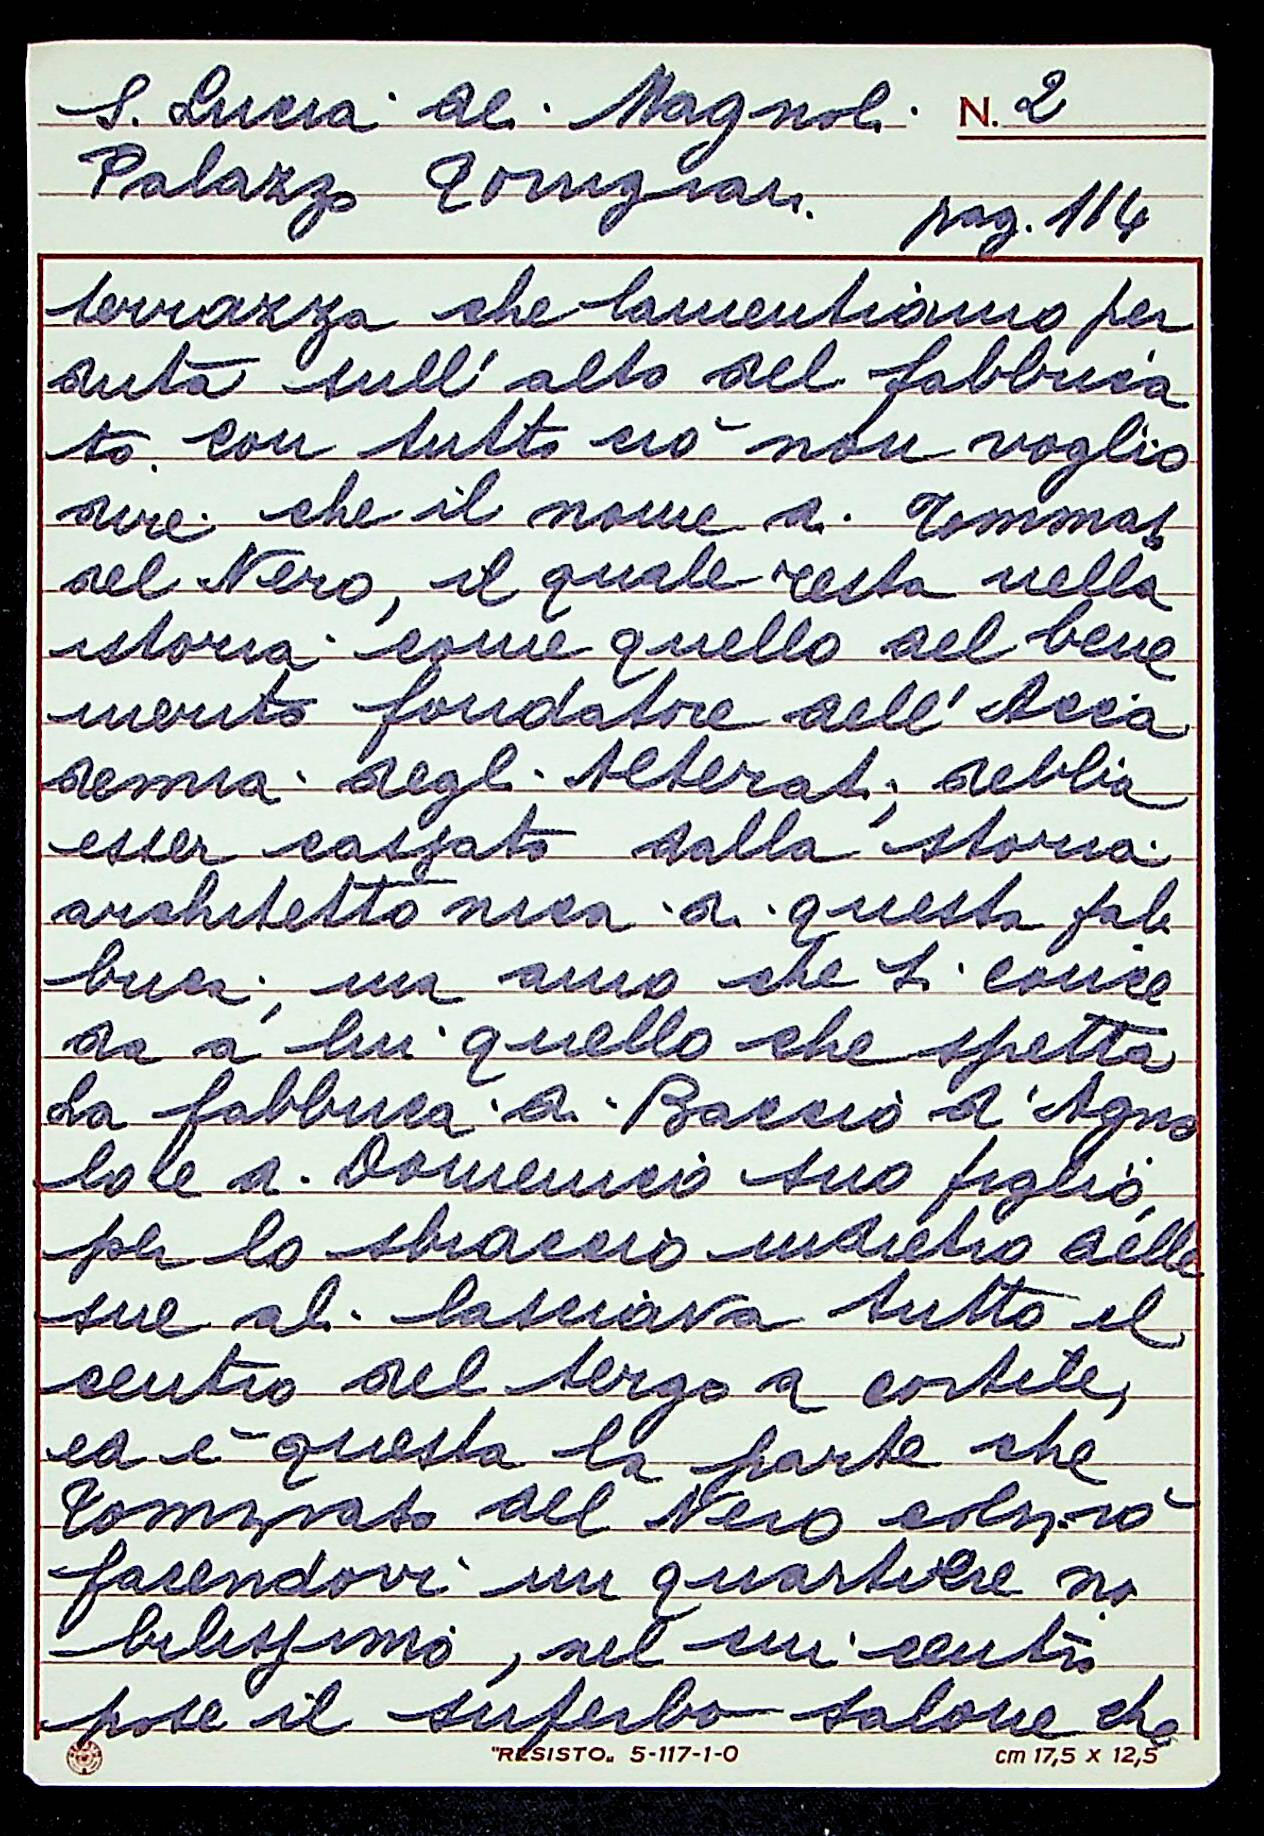 S. Lucia de' Magnoli N. 2
Palazzo Torrigiani
pag. 114
terrazza che lamentiamo per
duta sull'alto del fabbrica
to. Con tutto ciò non voglio
dire che il nome di Tommaso
del Nero, il quale resta nella
istoria come quello del bene
merito fondatore dell'Acca
demia degli Alterati, debbia
esser cassato dalla storia
architettonica di questa fab
brica, ma amo che si conce
da a lui quello che spetta
La fabbrica di Baccio d'Agno
lo e di Domenico suo figlio,
per lo sbraccio indietro delle
sue ali lasciava tutto il
centro del tergo a cortile,
ed è questa la parte che
Tommaso del Nero edificò
facendovi un quartiere no
bilissimo, nel cui centro
pose il superbo salone che
"RESISTO" 5-117-1-0 cm 17,5 x 12,5